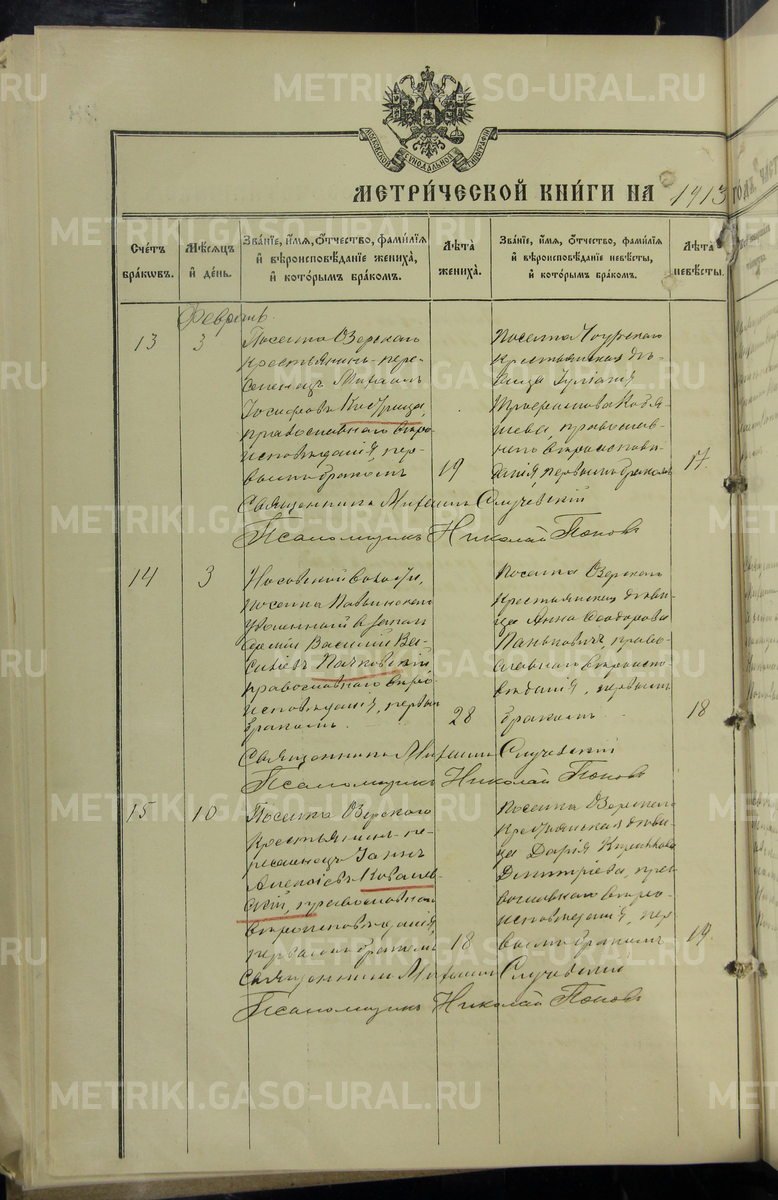 METRIKI.GASO-URAL.RU
МОСКОВСКОЙ СѴНОДАЛЬНОЙ ТИПОГРАФІИ
МЕТРИ́ЧЕСКОЙ КНИ́ГИ НА 1913 ГО́ДЪ, ЧАСТ
Сче́тъ бра́кωвъ.
Мѣ́сяцъ и҆ де́нь.
Зва́нїе, и҆́мя, ѻ҆́тчество, фами́лїя и҆ вѣроисповѣ́данїе жениха̀, и҆ кото́рымъ бра́комъ.
Лѣ́та жениха̀.
Зва́нїе, и҆́мя, ѻ҆́тчество, фами́лїя и҆ вѣроисповѣ́данїе невѣ́сты, и҆ кото́рымъ бра́комъ.
Лѣ́та невѣ́сты.
Февраль.
13
3
Поселка Озерскаго
крестьянинъ-пере-
селенецъ Михаилъ
Іосифовъ Кострица,
православнаго вѣро-
исповѣданія, пер-
вымъ бракомъ
19
Поселка
крестьянская дѣ-
вица Іуліанія
православ-
наго вѣроисповѣ-
данія, первымъ бракомъ
17.
Священникъ Михаилъ Случевскій
Псаломщикъ Николай Поповъ
14
3
Носовской волости,
поселка Павьинскаго
уволенный въ запасъ
арміи Василій Ва-
сильевъ Пачковскій
православнаго вѣро-
исповѣданія, первымъ
бракомъ.
28
Поселка Озерскаго
крестьянская дѣви-
ца Анна Ѳеодорова
Паньковичъ, право-
славнаго вѣроиспо-
вѣданія, первымъ
бракомъ
18
Священникъ Михаилъ Случевскій
Псаломщикъ Николай Поповъ
15
10
Поселка Озерскаго
крестьянинъ-пе-
реселенецъ Іоаннъ
Алексіевъ Ковалев-
скій, православнаго
вѣроисповѣданія,
первымъ бракомъ
18
Поселка Озерскаго
крестьянская дѣви-
ца Дарія
Димитріева, пра-
вославнаго вѣро-
исповѣданія, пер-
вымъ бракомъ
19.
Священникъ Михаилъ Случевскій
Псаломщикъ Николай Поповъ